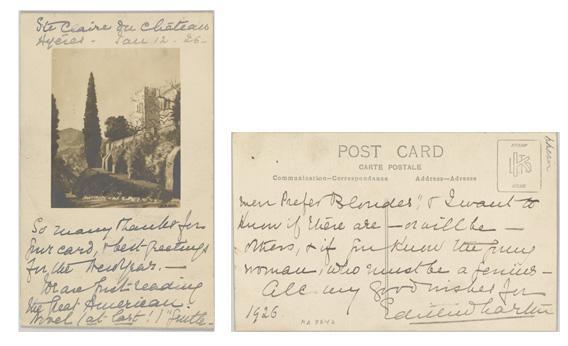 Ste Claire du Château
Hyères - Jan 12 - 26 -
So many thanks for
your card, & best greetings
for the New Year. -
We are just reading
the Great American
Novel (at last!) "Gentle-
POST CARD
CARTE POSTALE
Communication-Correspondance Address-Adresse
men Prefer Blondes", & I want to
know if there are - or will be -
others, & if you know the young
woman, who must be a genius -
All my good wishes for
1926 Edith Wharton